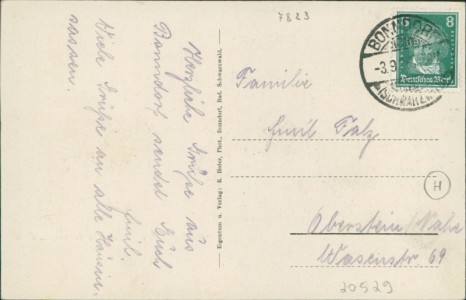 7823
Herzliche Grüße aus
Bonndorf sendet Euch
Emil.
Viele Grüße an alle Hausin-
sassen.
Eigentum u. Verlag: R. Hofer, Phot., Bonndorf, Bad. Schwarzwald.
BONNDORF
-3.9.
(SCHWARZW.)
8
Deutsches Reich
Familie
Emil Falz
H
Oberstein/Nahe
Wasenstr 69
20529